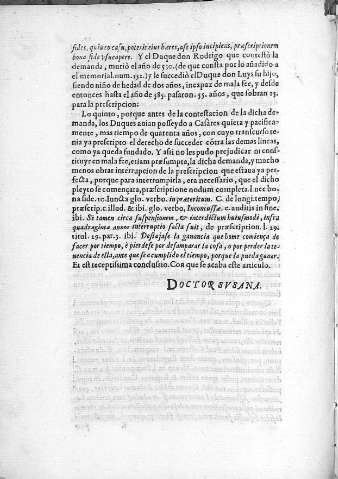 fides, quia eo casu, poterit eius hæres, ab se ipso incipiens, præscriptionem
bona fide suscepere. Y el Duque don Rodrigo que contestò la
demanda, murió el año de 530. (de que consta por lo añadido a
el memorial. num. 132.) y le sucedió el Duque don Luys su hijo,
siendo niño de hedad de dos años, incapaz de mala fee, y desde
entonces hasta el año de 585. passaron. 55. años, que sobran
para la prescripcion:
Lo quinto, porque antes de la contestacion de la dicha de-
manda, los Duques auian posseydo a Casàres quieta y pacifica-
mente, mas tiempo de quarenta años, con cuyo transcurso te-
nia ya prescripto el derecho de succeder côtra las demas lineas,
como ya queda fundado. Y assi no les pudo prejudicar ni cons-
tituyr en mala fee, etiam præsumpta, la dicha demanda, y mucho
menos obrar interrupcion de la prescripcion que estaua ya per-
fecta, porque para interrumpirla, era necessario, que el dicho
pleyto se començara, præscriptione nodum completa. l. nec bo-
na fide. 10. iuncta glo. verbo. in præteritum. C. de longi. tempo,
præscrip. c. illud. & ibi. glo. verbo, Inconcussæ. c. auditis in fine,
ibi. Si tamen circa suspensionem, & interdictum huiusmodi, infra
quadragima annos interruptio facta fuit, de præscription. l. 29.
titul. 29. par. 3. ibi. Desatasse la ganancia que home comiença de
fazer por tiempo, è pierdese por desamparar la cosa, o por perder la te-
nencia de ella, ante que sea cumplido el tiempo, porque la pueda ganar.
Et est receptissima conclusio. Con que se acaba este articulo.
DOCTOR SVSANA.